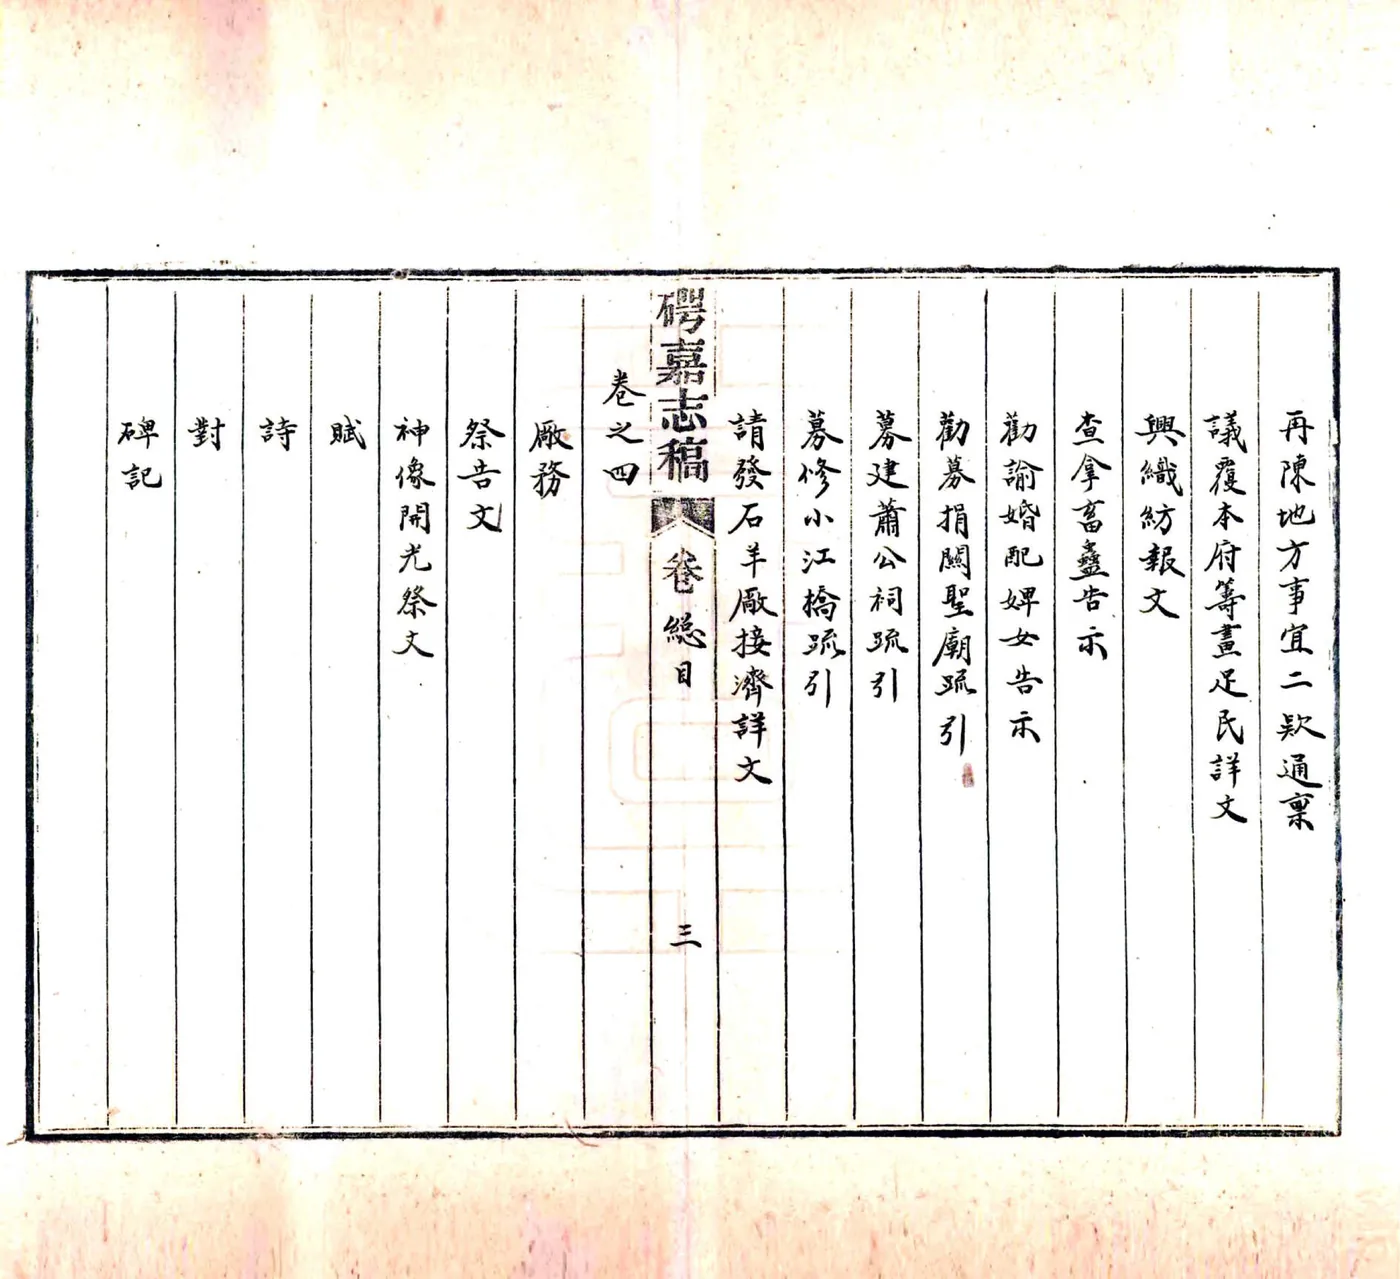 再陳地方事宜二款通稟
議覆本府籌畫足民詳文
興織紡報文
查拿畜蠱告示
勸諭婚配婢女告示
勸募捐關聖廟疏引
募建蕭公祠疏引
募修小江橋疏引
請發石羊廠接濟詳文
碍嘉志稿 卷總目 三
卷之四
廠務
祭告文
神像開光祭文
賦
詩
對
碑記